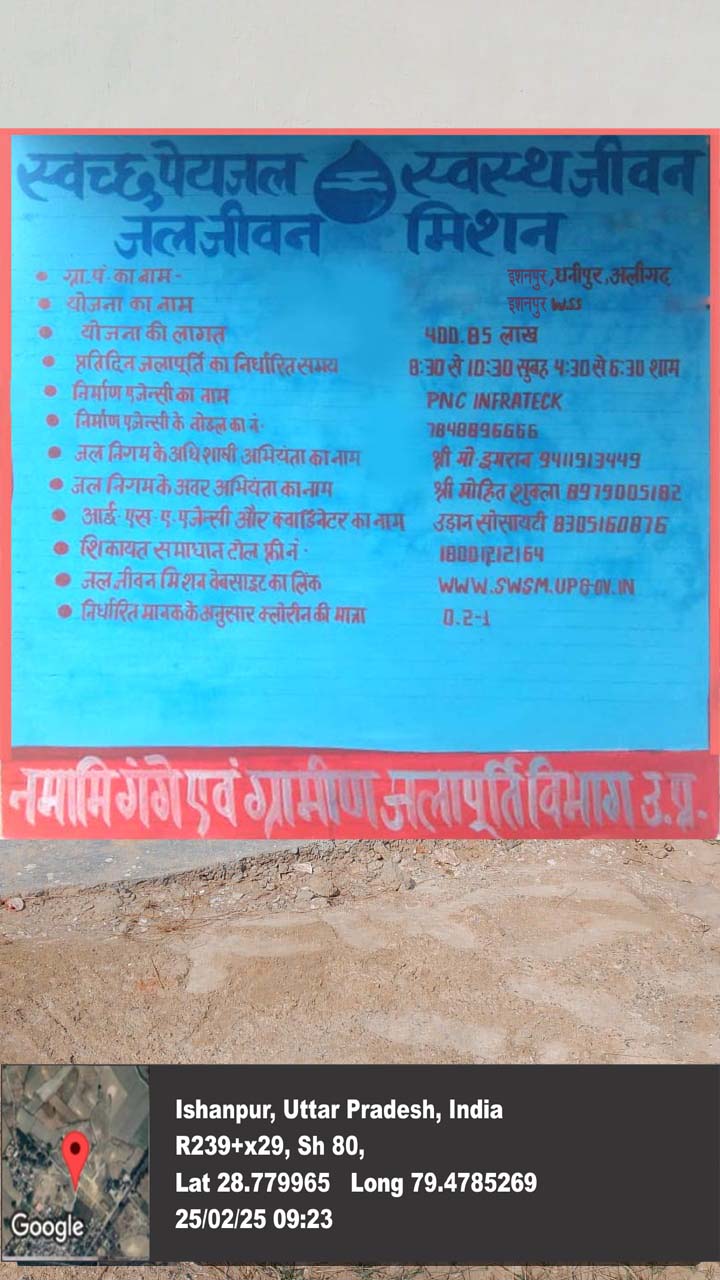 स्वच्छ पेयजल स्वस्थ जीवन
जल जीवन मिशन
ग्रा.पं. का नाम - इशनपुर, धनीपुर, अलीगढ़
योजना का नाम इशनपुर WSS
योजना की लागत 400.85 लाख
प्रतिदिन जलापूर्ति का निर्धारित समय 8:30 से 10:30 सुबह 4:30 से 6:30 शाम
निर्माण एजेन्सी का नाम PNC INFRATECK
निर्माण एजेन्सी के नोडल का नं. 7848896666
जल निगम के अधिशाषी अभियंता का नाम श्री मो. इमरान 9411913449
जल निगम के अवर अभियंता का नाम श्री मोहित शुक्ला 8979005182
आई. एस. ए. एजेन्सी और क्वार्डिनेटर का नाम उड़ान सोसायटी 8305160876
शिकायत समाधान टोल फ्री नं. 18001212164
जल जीवन मिशन वेबसाइट का लिंक WWW.SWSM.UPGOV.IN
निर्धारित मानक के अनुसार क्लोरीन की मात्रा 0.2-1
नमामि गंगे एवं ग्रामीण जलापूर्ति विभाग उ.प्र.
Ishanpur, Uttar Pradesh, India
R239+x29, Sh 80,
Lat 28.779965 Long 79.4785269
25/02/25 09:23
Google